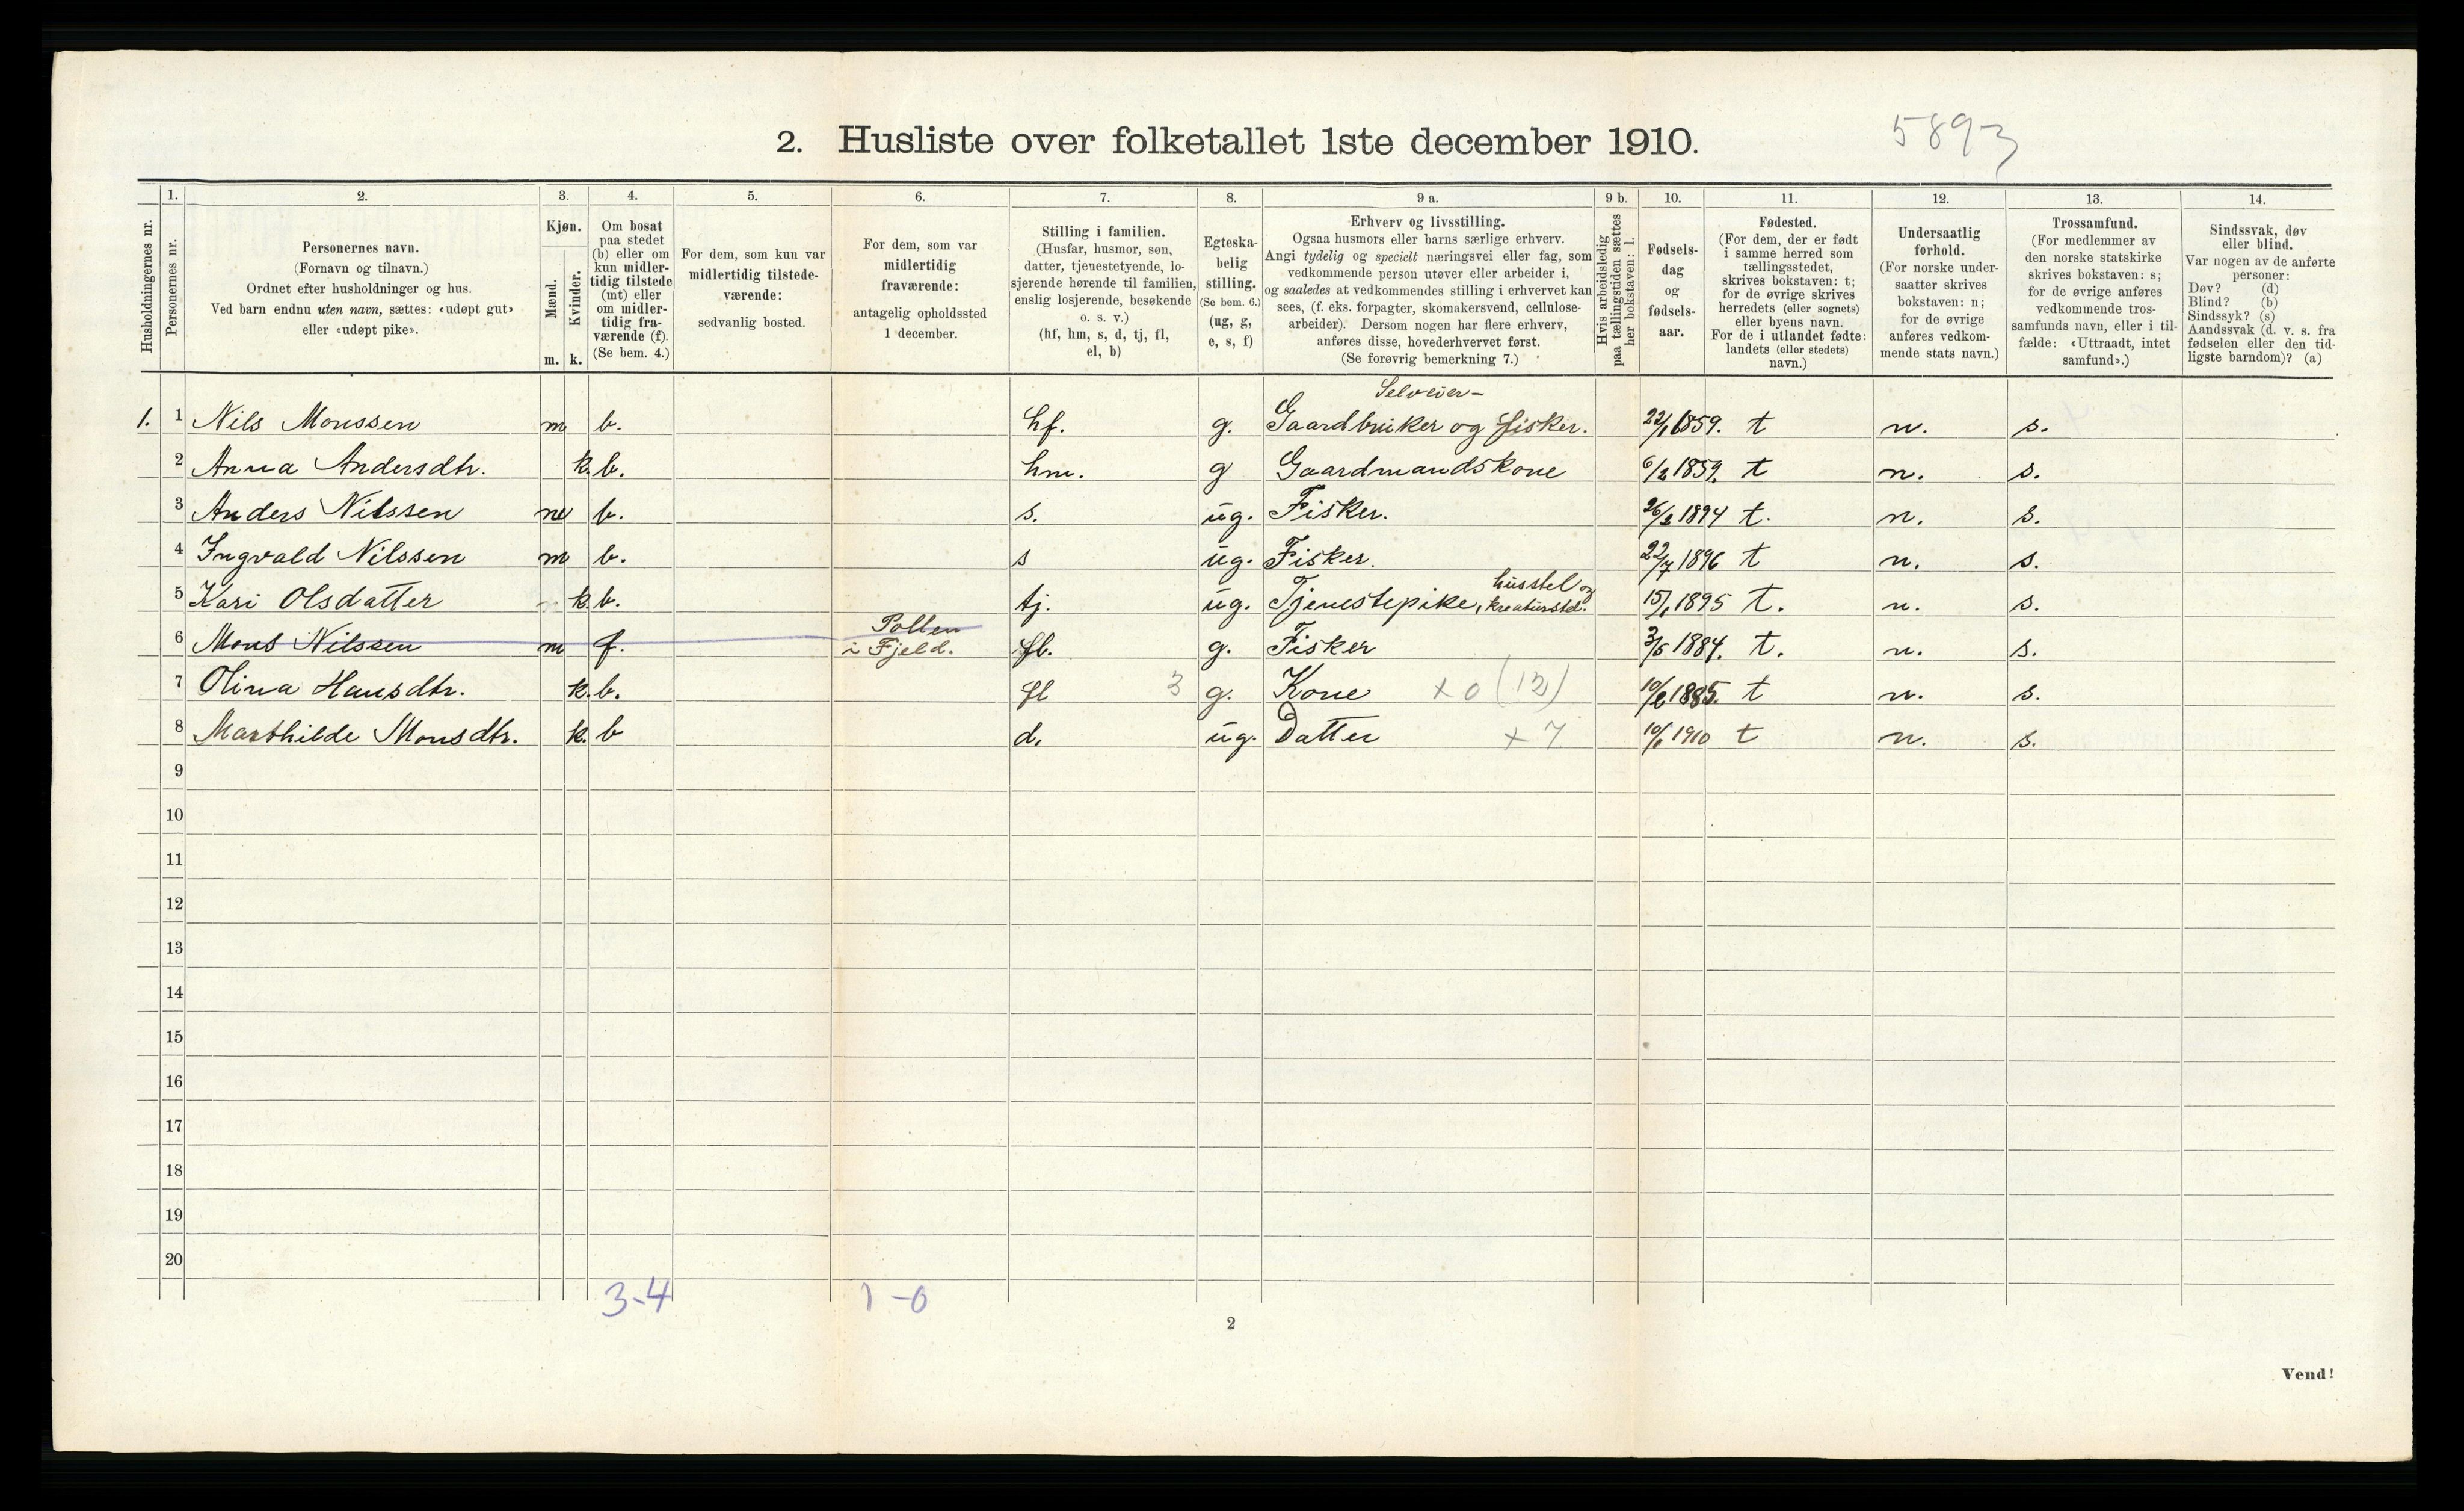 2. Husliste over folketallet 1ste december 1910.
5893
Husholdningernes nr.
1.
Personernes nr.
2.
Personernes navn.
(Fornavn og tilnavn.)
Ordnet efter husholdninger og hus.
Ved barn endnu uten navn, sættes: «udøpt gut»
eller «udøpt pike».
3.
Kjøn.
Mænd.
m.
Kvinder.
k.
4.
Om bosat
paa stedet
(b) eller om
kun midler-
tidig tilstede
(mt) eller
om midler-
tidig fra-
værende (f).
(Se bem. 4.)
5.
For dem, som kun var
midlertidig tilstede-
værende:
sedvanlig bosted.
6.
For dem, som var
midlertidig
fraværende:
antagelig opholdssted
1 december.
7.
Stilling i familien.
(Husfar, husmor, søn,
datter, tjenestetyende, lo-
sjerende hørende til familien,
enslig losjerende, besøkende
o. s. v.)
(hf, hm, s, d, tj, fl,
el, b)
8.
Egteska-
belig
stilling.
(Se bem. 6.)
(ug, g,
e, s, f)
9 a.
Erhverv og livsstilling.
Ogsaa husmors eller barns særlige erhverv.
Angi tydelig og specielt næringsvei eller fag, som
vedkommende person utøver eller arbeider i,
og saaledes at vedkommendes stilling i erhvervet kan
sees, (f. eks. forpagter, skomakersvend, cellulose-
arbeider). Dersom nogen har flere erhverv,
anføres disse, hovederhvervet først.
(Se forøvrig bemerkning 7.)
9 b.
Hvis arbeidsledig
paa tællingstiden sættes
her bokstaven: l.
10.
Fødsels-
dag
og
fødsels-
aar.
11.
Fødested.
(For dem, der er født
i samme herred som
tællingsstedet,
skrives bokstaven: t;
for de øvrige skrives
herredets (eller sognets)
eller byens navn.
For de i utlandet fødte:
landets (eller stedets)
navn.)
12.
Undersaatlig
forhold.
(For norske under-
saatter skrives
bokstaven: n;
for de øvrige
anføres vedkom-
mende stats navn.)
13.
Trossamfund.
(For medlemmer av
den norske statskirke
skrives bokstaven: s;
for de øvrige anføres
vedkommende tros-
samfunds navn, eller i til-
fælde: «Uttraadt, intet
samfund».)
14.
Sindssvak, døv
eller blind.
Var nogen av de anførte
personer:
Døv? (d)
Blind? (b)
Sindssyk? (s)
Aandssvak (d. v. s. fra
fødselen eller den tid-
ligste barndom)? (a)
Selveier-
1. 1 Nils Monssen m b. hf. g. Gaardbruker og fisker. 1859. t n. s.
2 Anna Andersdtr. k. b. hm. g Gaardmandskone 6/2 1859. t n. s.
3 Anders Nilssen m b. s. ug. Fisker. 26/2 1894 t. n. s.
4 Ingvald Nilssen m b. s ug. Fisker. 22/7 1896 t n. s.
husstel og
5 Kari Olsdatter k. b. tj. ug. Tjenestepike, kreaturstel. 15/1 1895 t. n. s.
Pollen
6 Mons Nilssen m f. i Fjeld. fl. g. Fisker 3/5 1884. t. n. s.
7 Olina Hansdtr. k. b. fl 3 g. Kone x 0 (12) 10/2 1885. t n. s.
8 Marthilde Monsdtr. k. b d. ug. Datter x 7 1910 t n. s.
9
10
11
12
13
14
15
16
17
18
19
20
3-4 1-0
2
Vend!